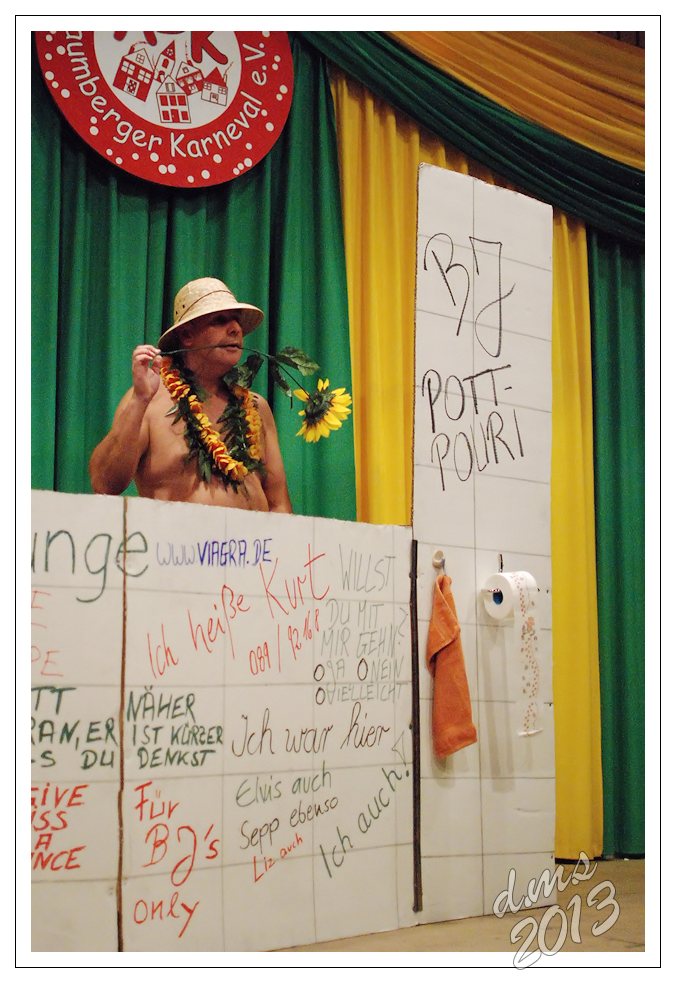 Karneval e.V.
BJ
POTT-
POURI
unge
WWW.VIAGRA.DE
Ich heiße Kurt
089/92168
WILLST
DU MIT
MIR GEHN?
O JA O NEIN
O VIELLEICHT
TT
RAN, ER
-S DU
NÄHER
IST KÜRZER
DENKST
Ich war hier
Elvis auch
Sepp ebenso
Liz auch
Ich auch!
GIVE
A
Für
BJ's
only
d.m.s
2013